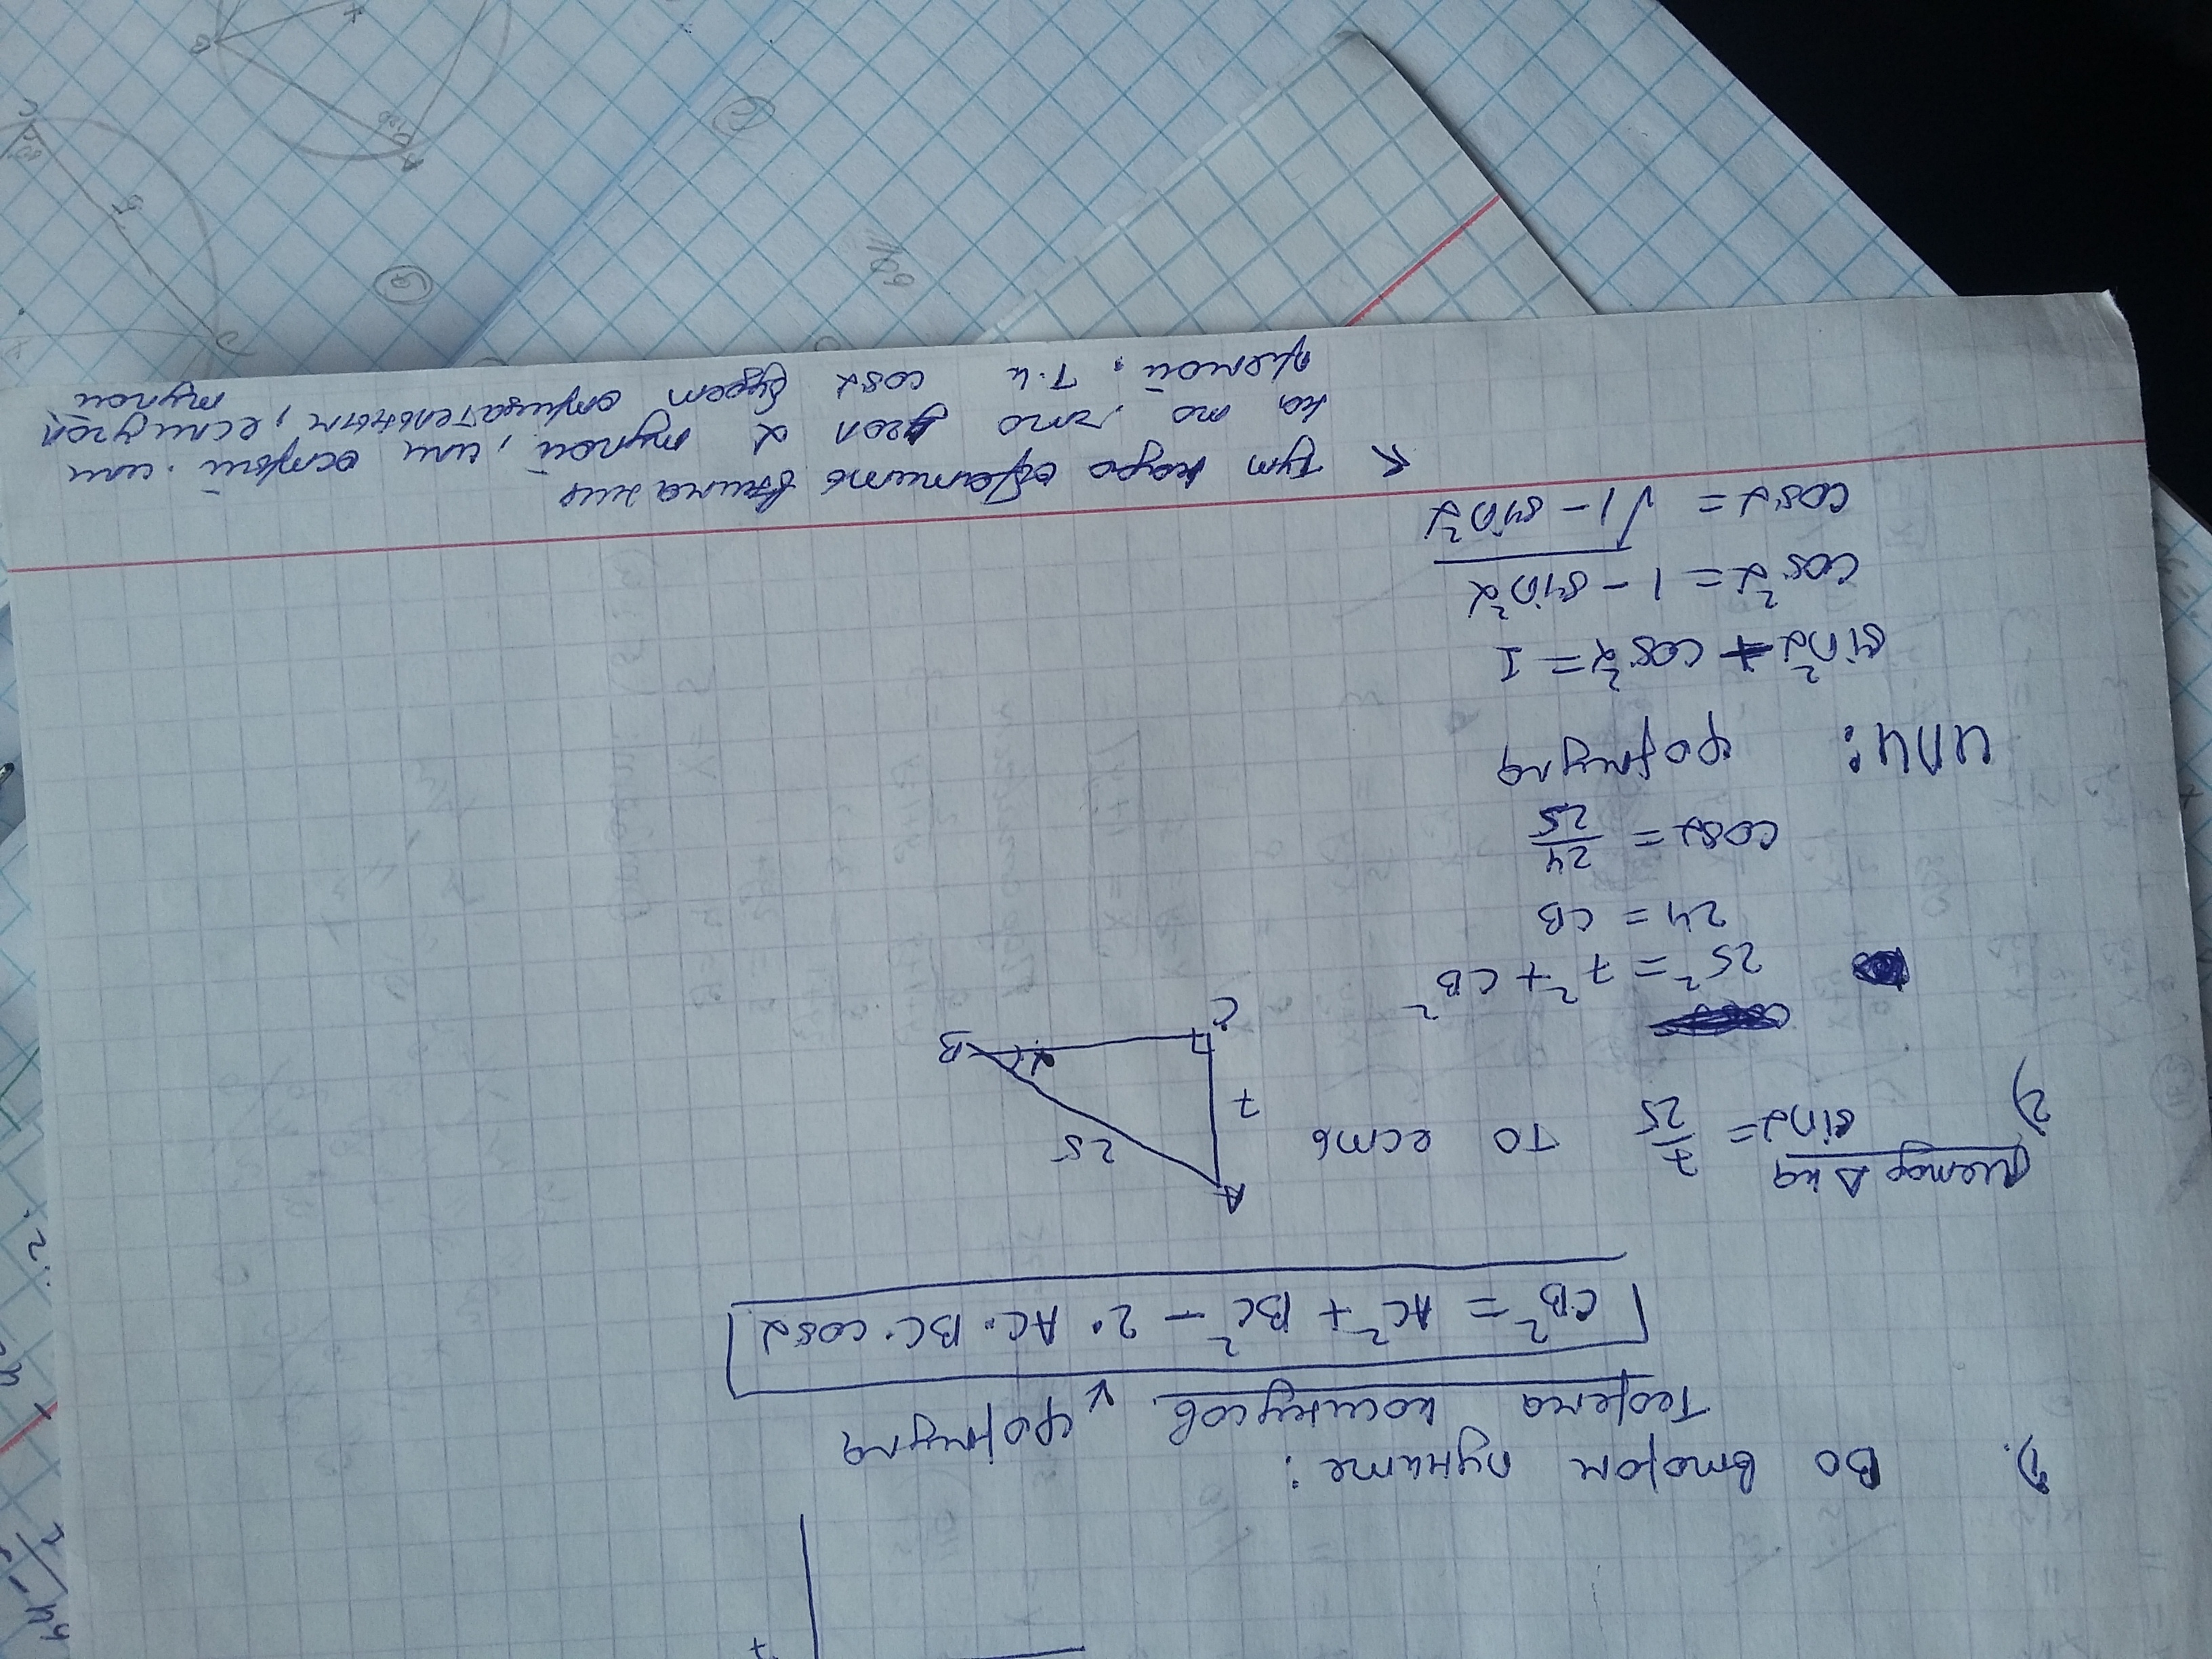 1). Во втором пункте:
Теорема косинусов формула
CB² = AC² + BC² - 2 · AC · BC · cosα
2) Метод Δка
sinα = 7/25 то есть
A
25
7
C
B
α
25² = 7² + CB²
24 = CB
cosα = 24/25
или: формула
sin²α + cos²α = 1
cos²α = 1 - sin²α
cosα = √1 - sin²α
< Тут надо обратить внимание
на то, что угол α тупой, или острый. или
прямой. Т.к cosα будет отрицательным, если угол
тупой